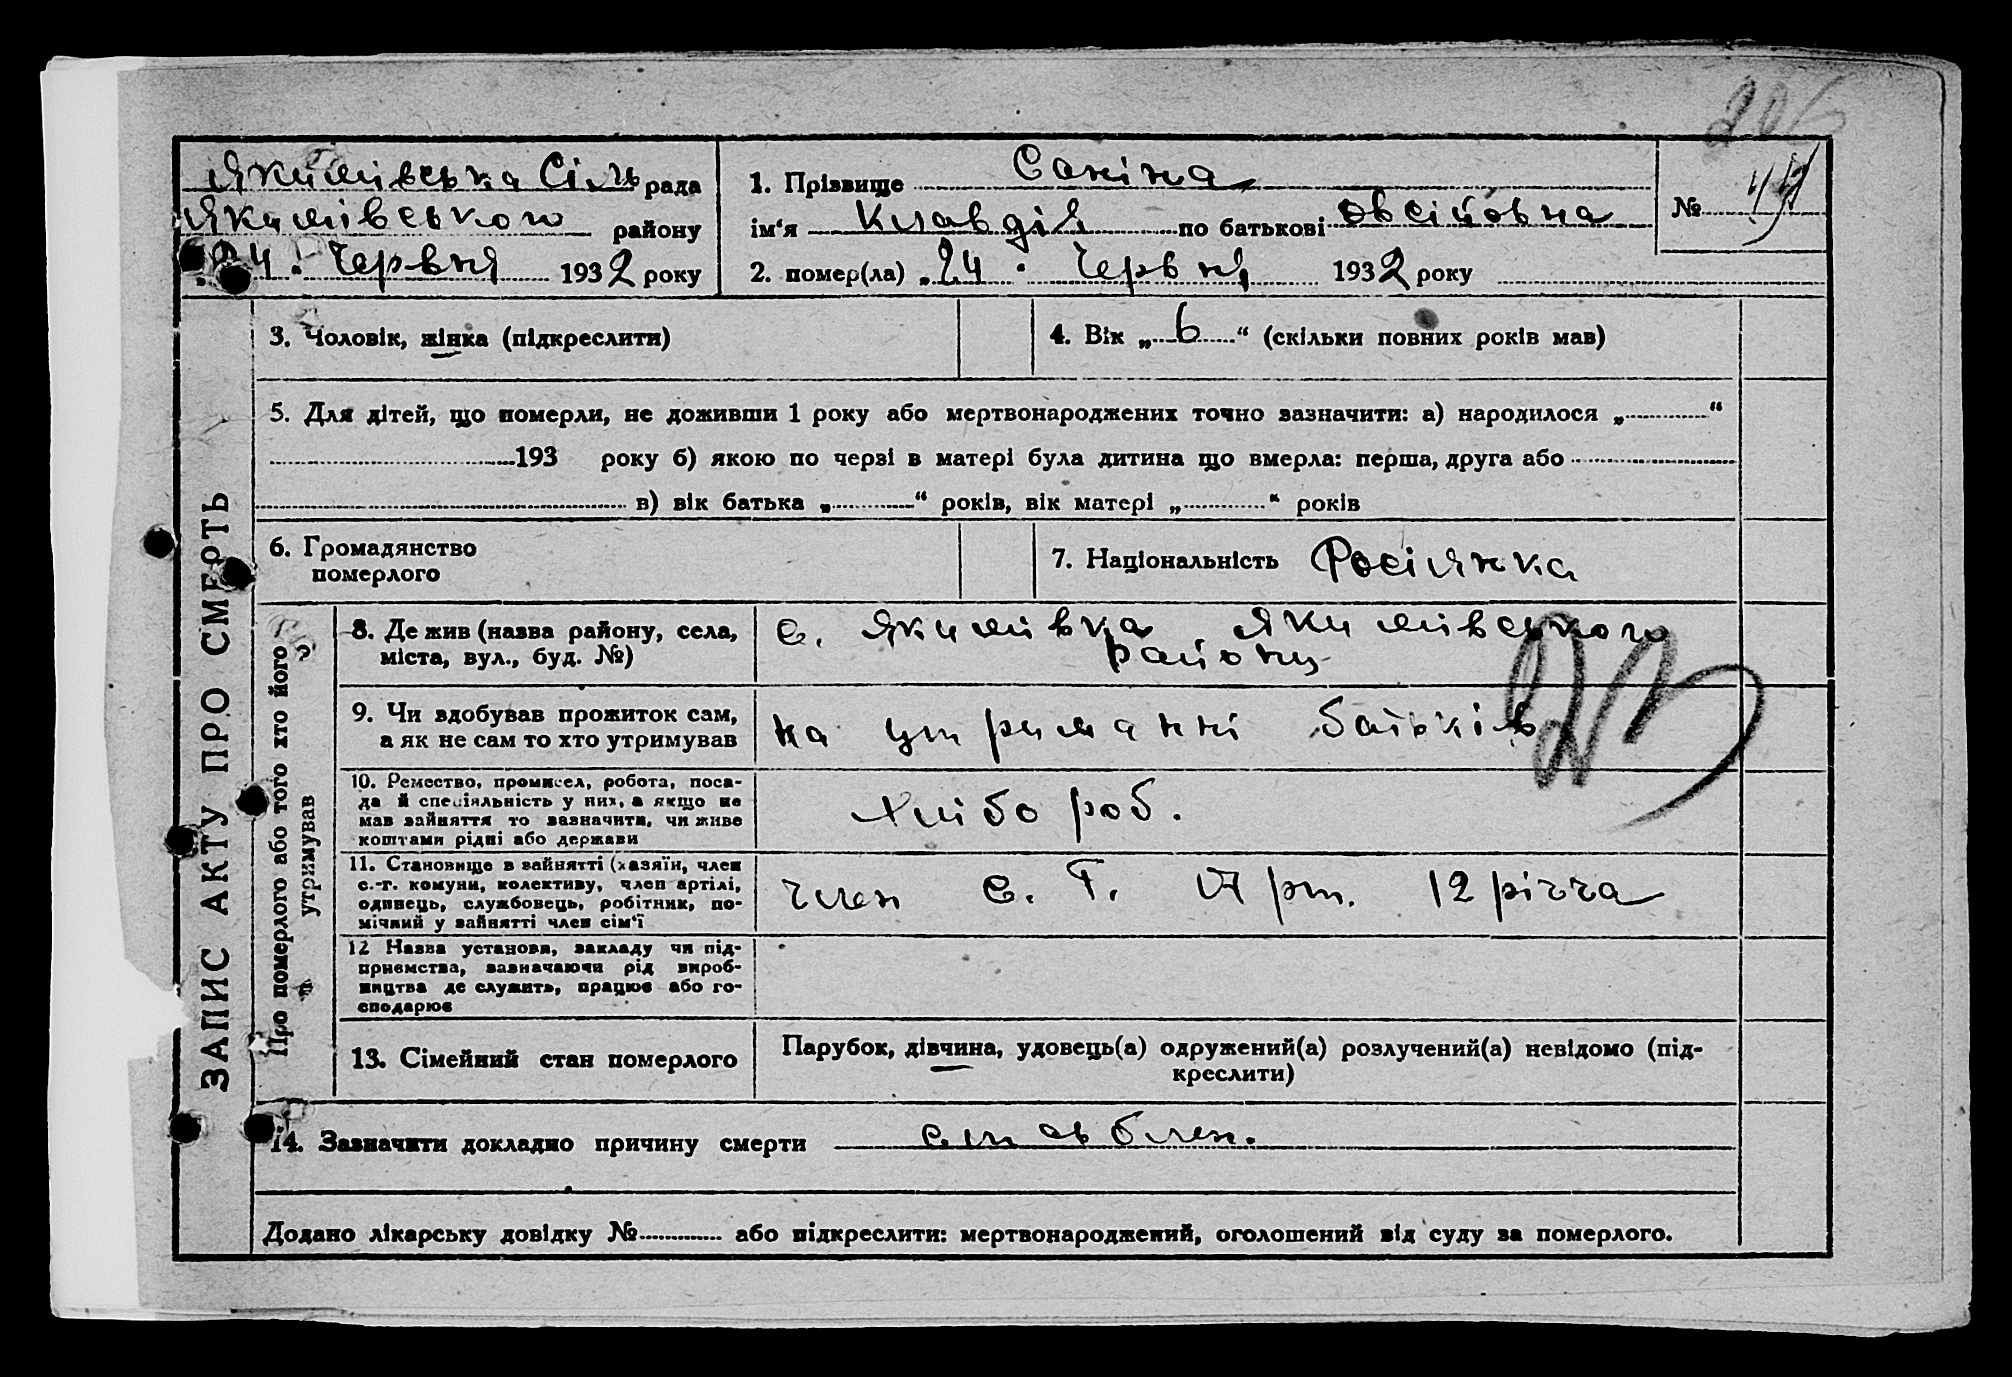 206
Якимівська Сіль рада
Якимівського району
24. Червня 1932 року
1. Прізвище Саніна
ім'я Клавдія по батькові Овсійовна
№
2. помер(ла) „24" Червня 1932 року
3. Чоловік, жінка (підкреслити)
4. Вік „6" (скільки повних років мав)
5. Для дітей, що померли, не доживши 1 року або мертвонароджених точно зазначити: а) народилося „ “
193 року б) якою по черзі в матері була дитина що вмерла: перша, друга або
в) вік батька „ “ років, вік матері „ “ років
6. Громадянство
померлого
7. Національність Росіянка
ЗАПИС АКТУ ПРО СМЕРТЬ
Про померлого або того хто його
утримував
8. Де жив (назва району, села,
міста, вул., буд. №)
с. Якимівка, Якимівського
району
9. Чи здобував прожиток сам,
а як не сам то хто утримував
на утриманні батьків
10. Ремество, промисел, робота, поса-
да й спеціяльність у них, а якщо не
мав зайняття то зазначити, чи живе
коштами рідні або держави
Хлібороб.
11. Становище в зайнятті (хазяїн, член
с.-г. комуни, колективу, член артілі,
одинець, службовець, робітник, по-
мічний у зайнятті член сім'ї
член С. Г. Арт. 12 річча
12 Назва установи, закладу чи під-
приємства, зазначаючи рід вироб-
ництва де служить, працює або го-
сподарює
13. Сімейний стан померлого
Парубок, дівчина, удовець(а) одружений(а) розлучений(а) невідомо (під-
креслити)
14. Зазначити докладно причину смерти
Додано лікарську довідку № або підкреслити: мертвонароджений, оголошений від суду за померлого.